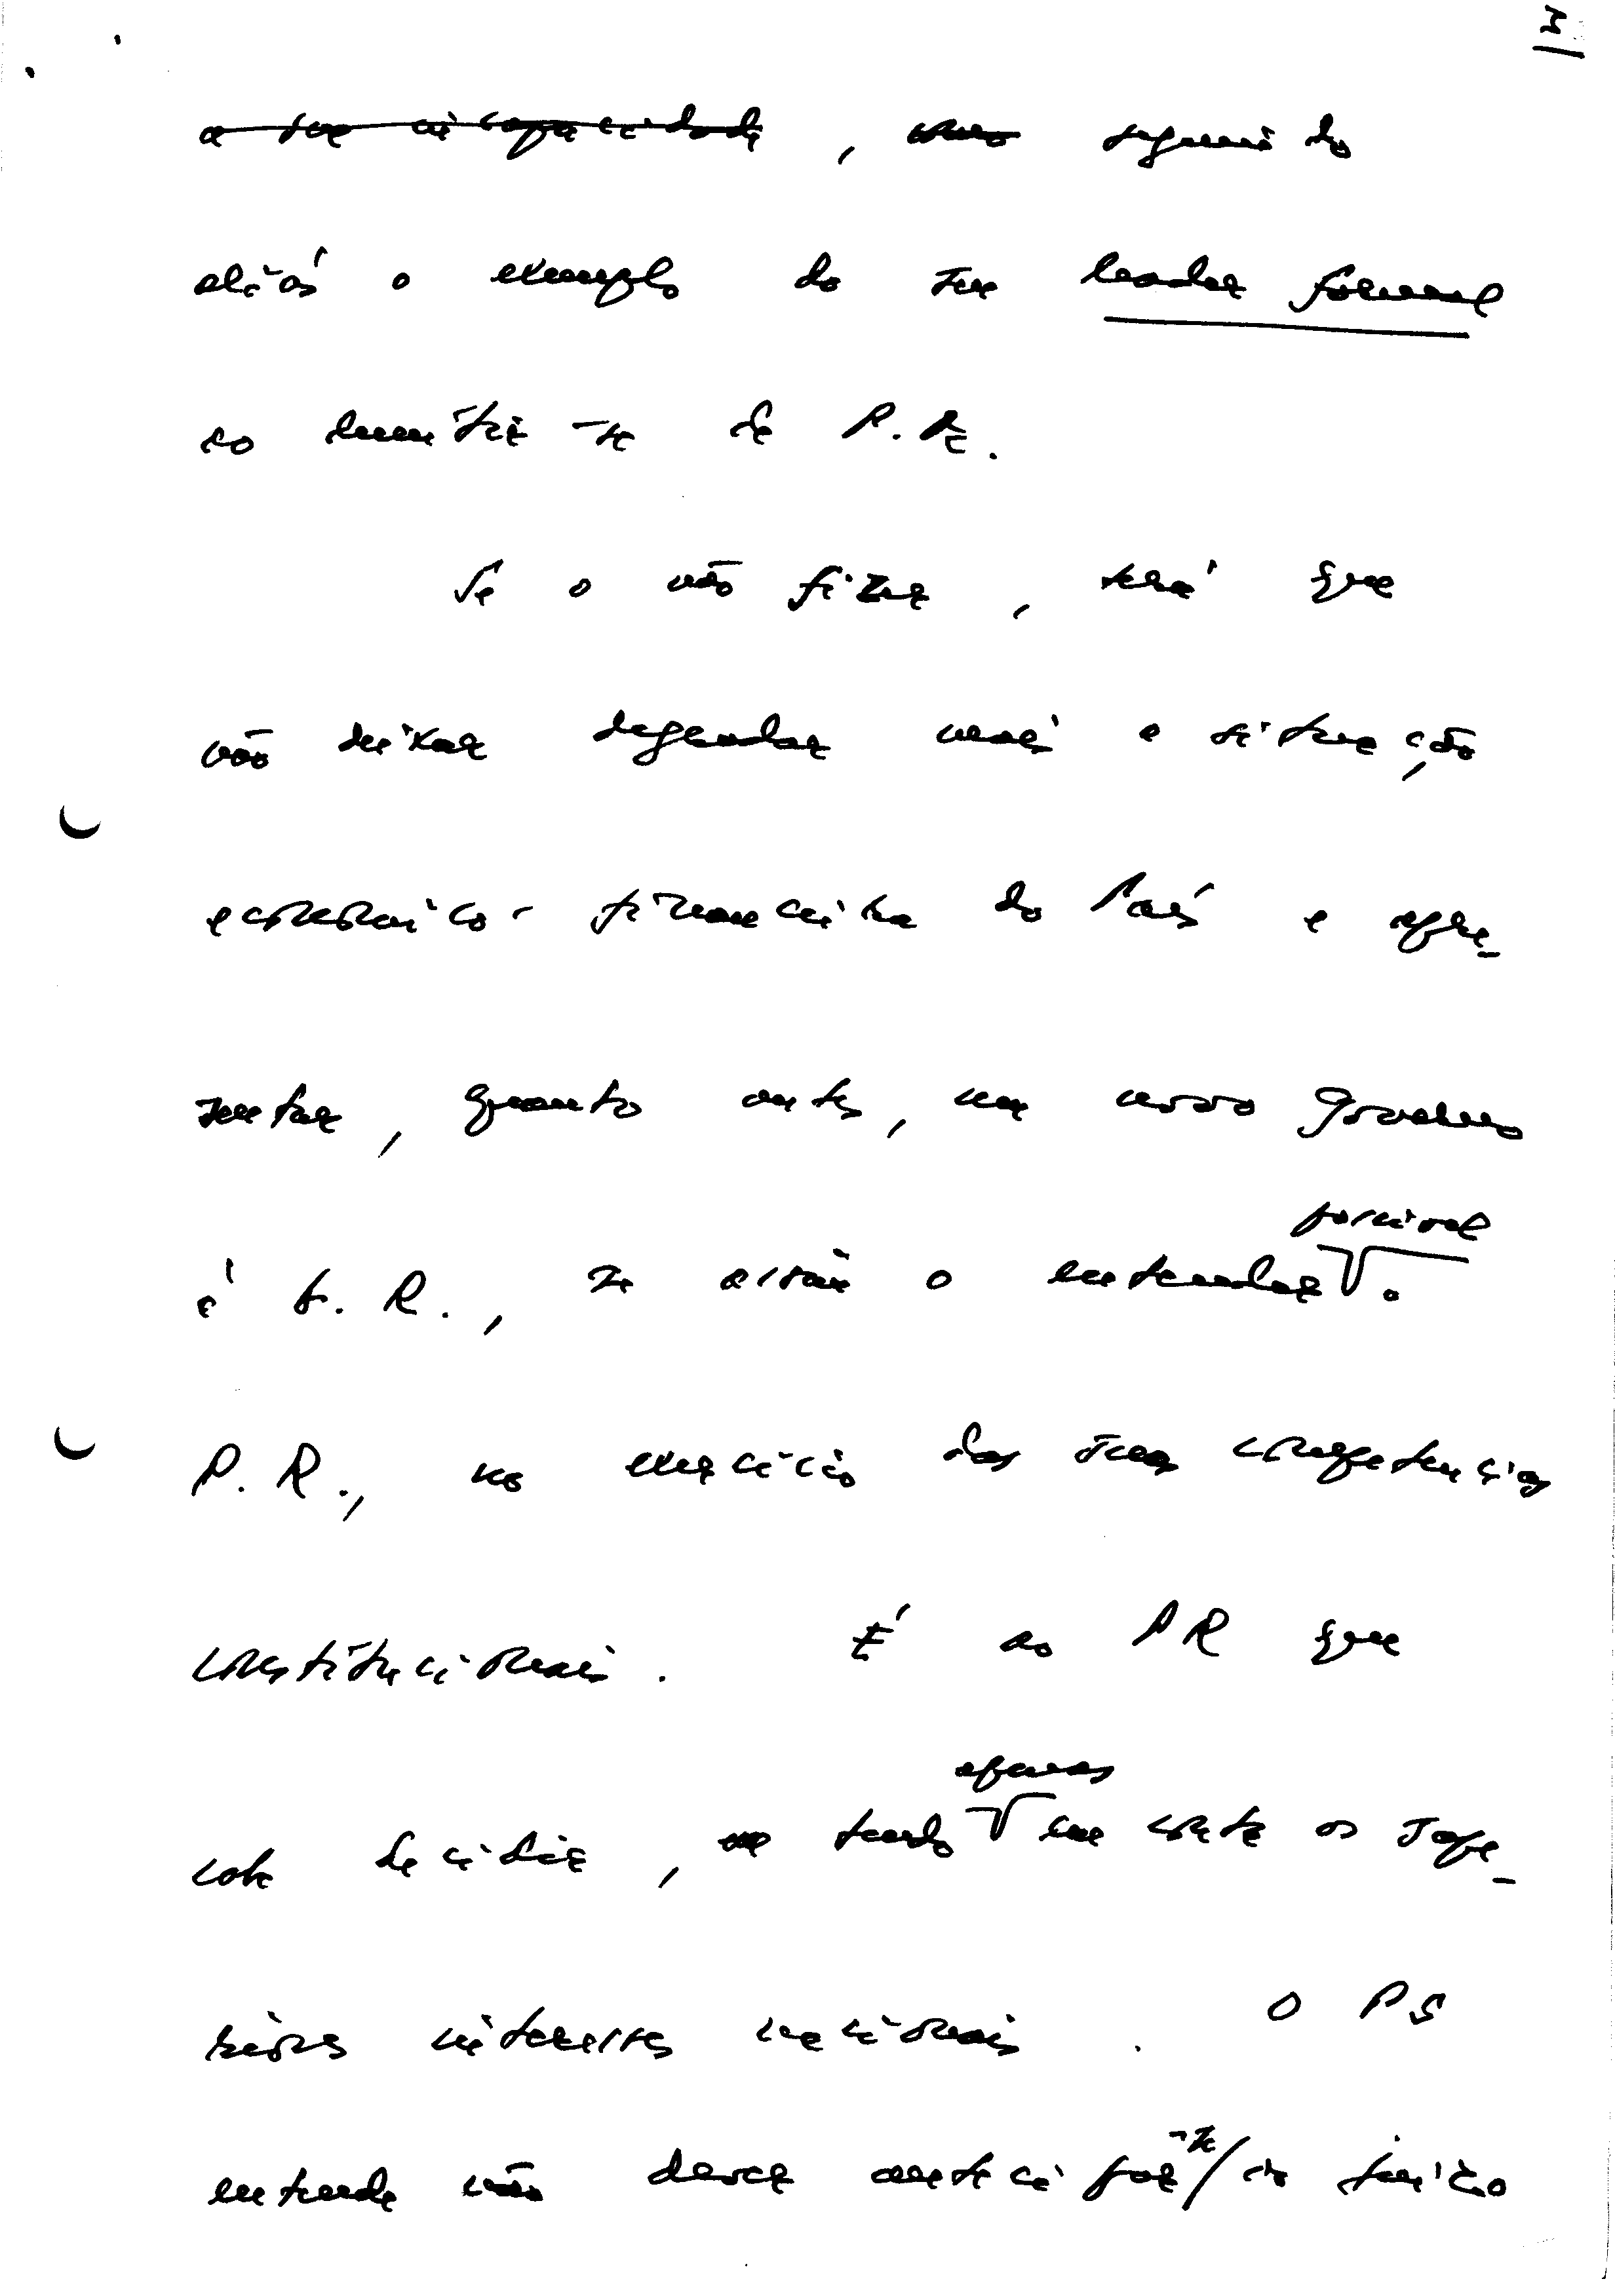 3
a sua incapacidade, como seguindo
aliás o exemplo do seu leader formal
ao demitir-se de P.M.
Se o não fizer, terá que
não deixar degradar mais a situação
economico-financeira do País e apre-
sentar, quanto antes, um novo Governo
à A.R., se assim o entender possivel
o
P.R., no exercício das suas competencias
constitucionais. É ao PR que
cabe decidir, tendo apenas em conta os supe-
riores interesses nacionais. O PS
entende não dever antecipar-se / ao juizo